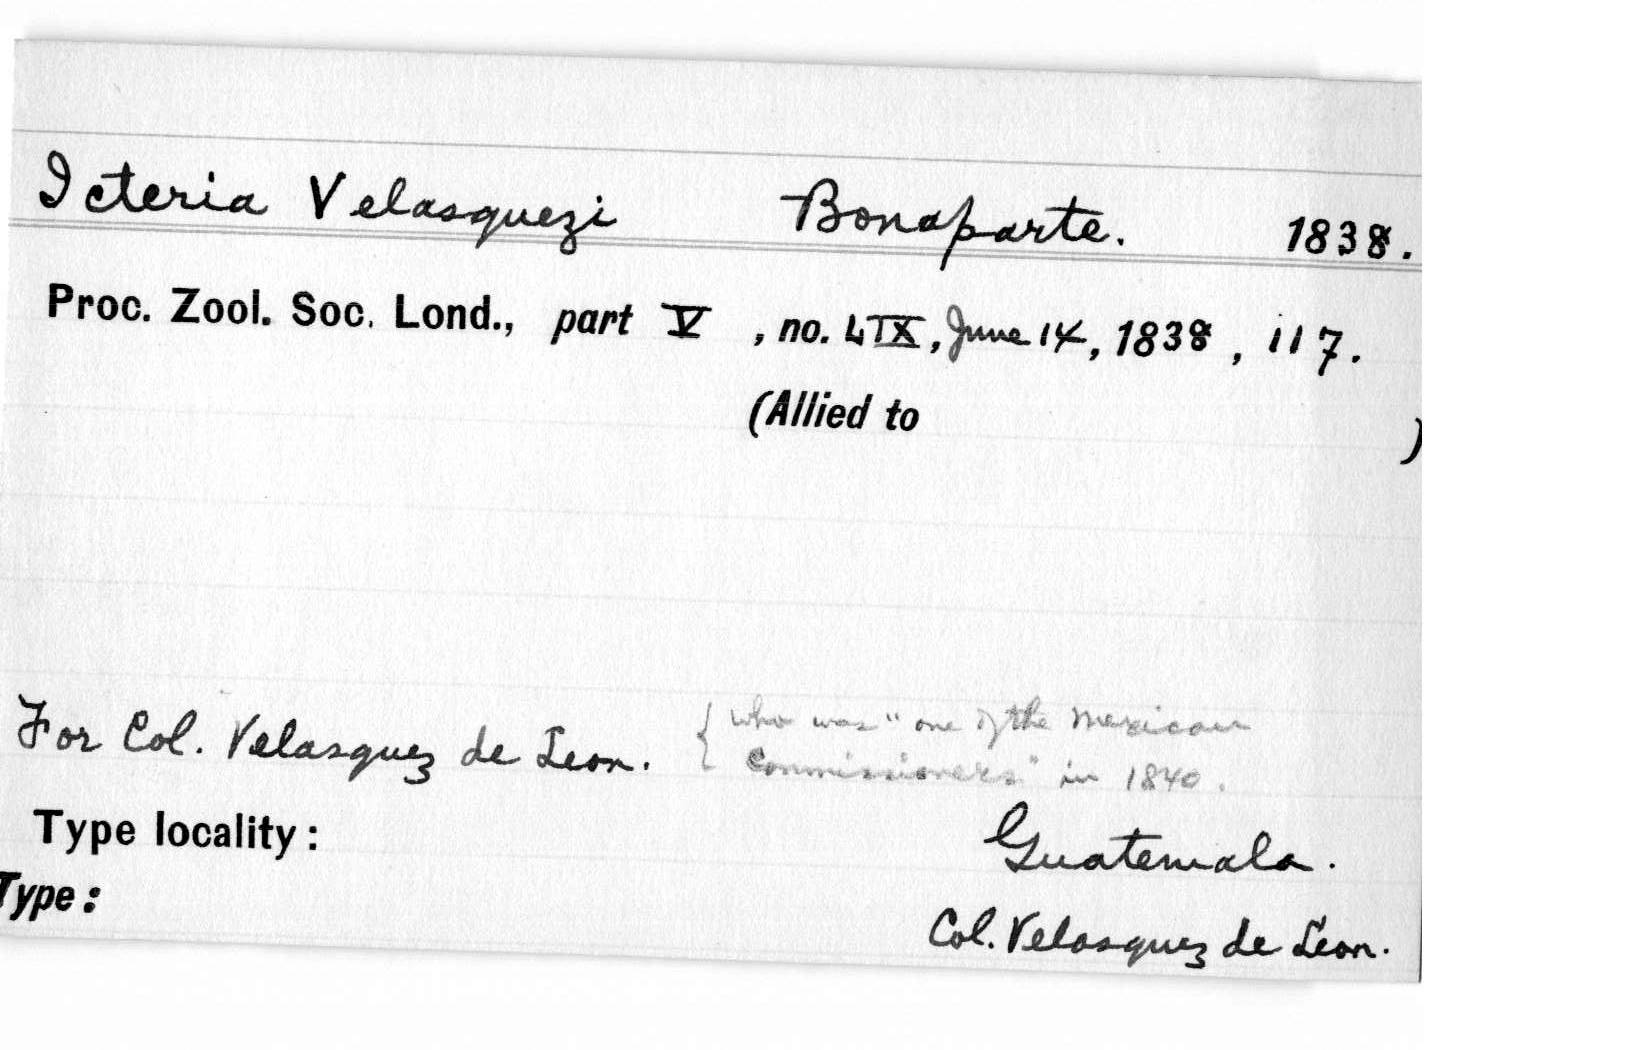 Icteria Velasquezi Bonaparte. 1838.
Proc. Zool. Soc. Lond., part V , no. LIX, June 14, 1838, 117.
(Allied to )
For Col. Velasquez de Leon. { who was "one of the Mexican
Commissioners" in 1840.
Type locality: Guatemala.
Type: Col. Velasquez de Leon.